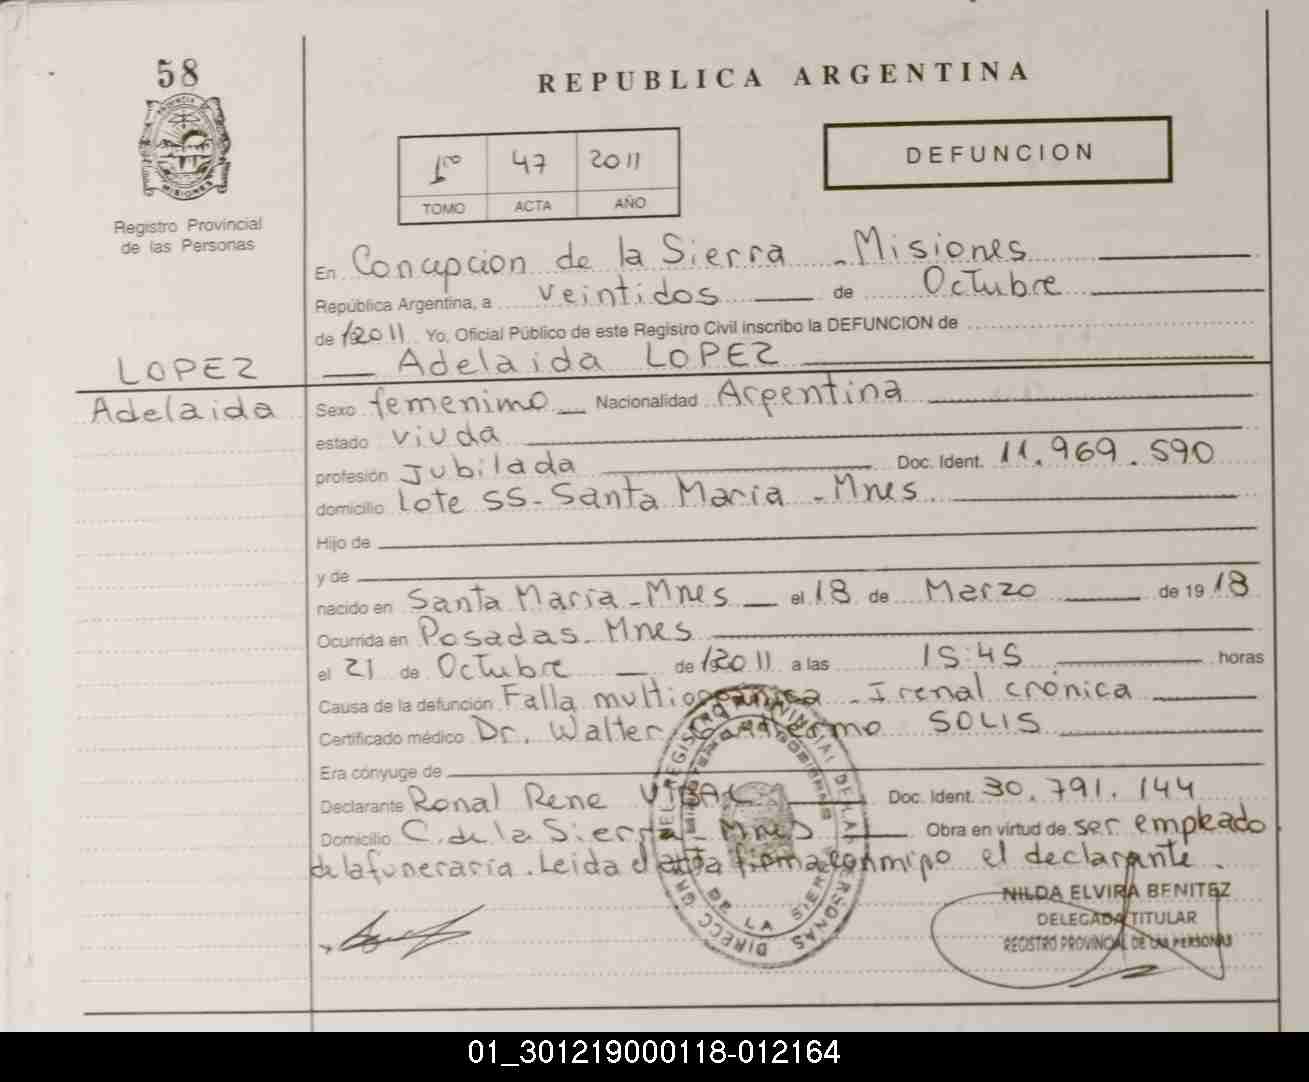 58
REPUBLICA ARGENTINA
1ro 47 2011
TOMO ACTA AÑO
DEFUNCION
PROVINCIA
MISIONES
Registro Provincial
de las Personas
En Concepcion de la Sierra - Misiones
República Argentina, a veintidos de Octubre
de 2011 Yo, Oficial Público de este Registro Civil inscribo la DEFUNCION de
LOPEZ Adelaida LOPEZ
Adelaida Sexo femenimo Nacionalidad Argentina
estado viuda
profesión Jubilada Doc. Ident. 11.969.590
domicilio Lote 55 - Santa Maria - Mnes
Hijo de
y de
nacido en Santa Maria - Mnes el 18 de Marzo de 19 18
Ocurrida en Posadas - Mnes
el 21 de Octubre de 2011 a las 15:45 horas
Causa de la defunción Falla multiorganica - I renal crónica
Certificado médico Dr. Walter SOLIS
Era cónyuge de
Declarante Ronal Rene Doc. Ident. 30.791.144
Domicilio C. de la Sierra - Mnes Obra en virtud de ser empleado
de la funeraria. Leida el acta firma conmigo el declarante.
NILDA ELVIRA BENITEZ
DELEGADA TITULAR
REGISTRO PROVINCIAL DE LAS PERSONAS
01_301219000118-012164